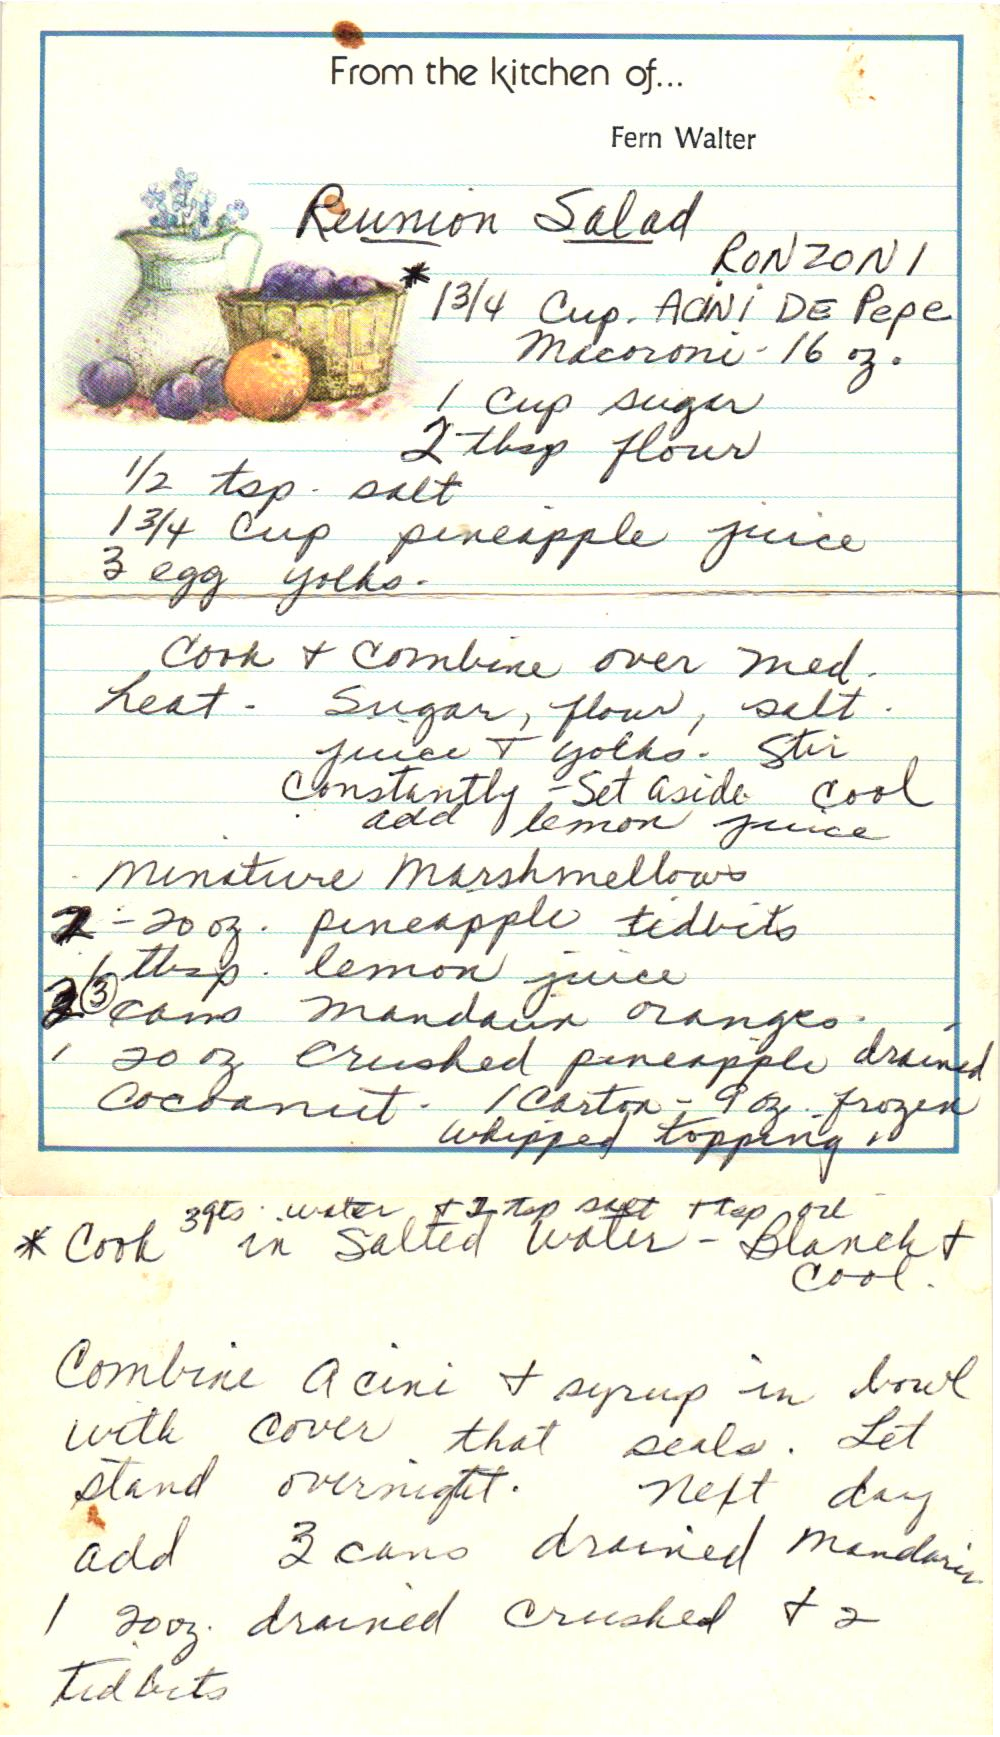 From the kitchen of...
Fern Walter
Reunion Salad
RONZONI
* 1 3/4 Cup. ACINI DE Pepe
Macoroni - 16 oz.
1 cup sugar
2 tbsp flour
1/2 tsp. salt
1 3/4 Cup pineapple juice
3 egg yolks.
Cook + Combine over med.
heat. Sugar, flour, salt.
juice + yolks. Stir
Constantly - Set aside cool
add lemon juice
Minature Marshmellows
2 - 20 oz. pineapple tidbits
1 tbsp. lemon juice
3 cans Mandarin oranges.
1 20 oz crushed pineapple drained
Cocoanut. 1 Carton - 9 oz. frozen
whipped topping
3 qts. water + tsp salt + tsp oil
* Cook in Salted Water - Blanch +
Cool.
Combine Acini + syrup in bowl
with cover that seals. Let
stand overnight. Next day
add 3 cans drained Mandarin
1 20 oz. drained crushed + 2
tidbits